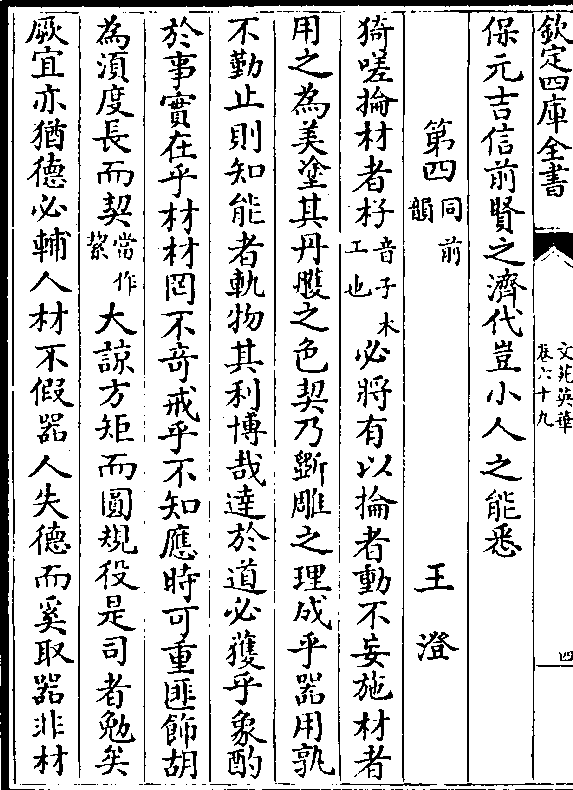 欽定四庫全書
文苑英華
卷六十九
四
保元吉信前賢之濟代豈小人之能悉
第四同前韻 王澄
猗嗟掄材者杍音子木工也必將有以掄者動不妄施材者
用之為美塗其丹雘之色契乃斵雕之理成乎器用孰
不勤止則知能者軌物其利博哉達於道必獲乎象酌
於事實在乎材材罔不竒戒乎不知應時可重匪飾胡
為湏度長而契當作絜大諒方矩而圓規役是司者勉矣
厥宜亦猶德必輔人材不假器人失德而奚取器非材